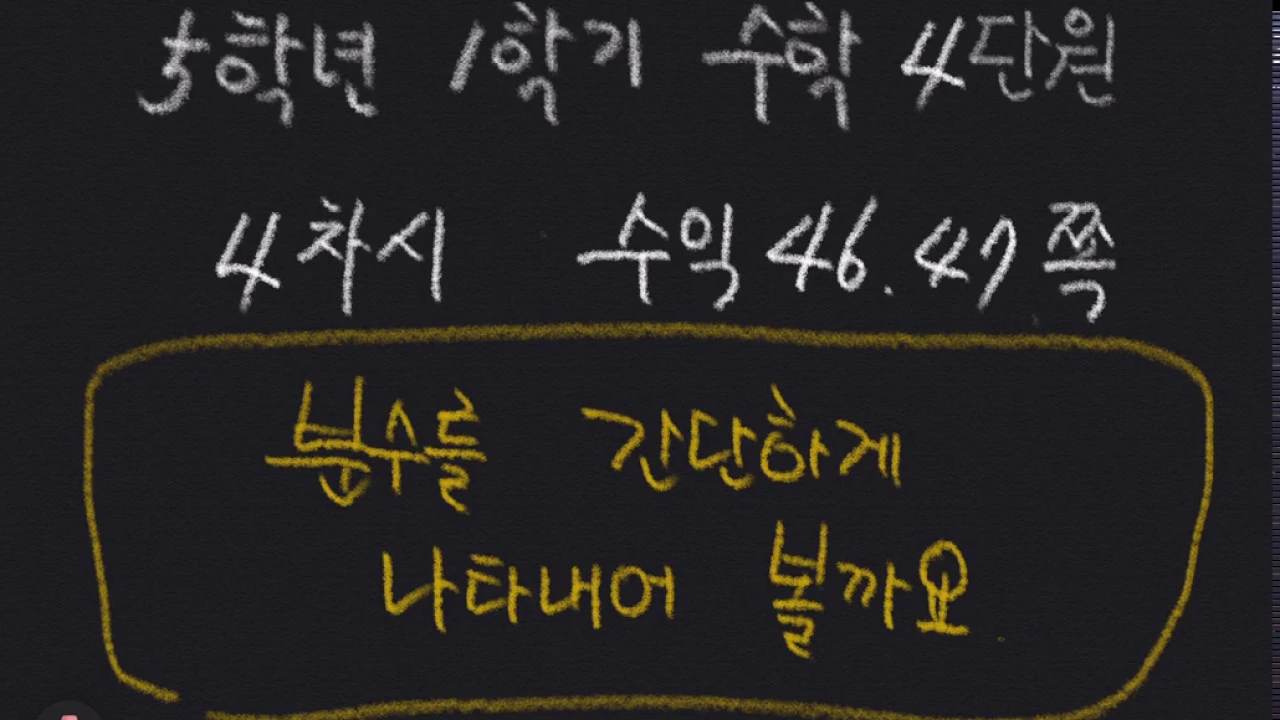 5학년 1학기 수학 4단원
4차시 수익 46.47쪽
분수를 간단하게
나타내어 볼까요.